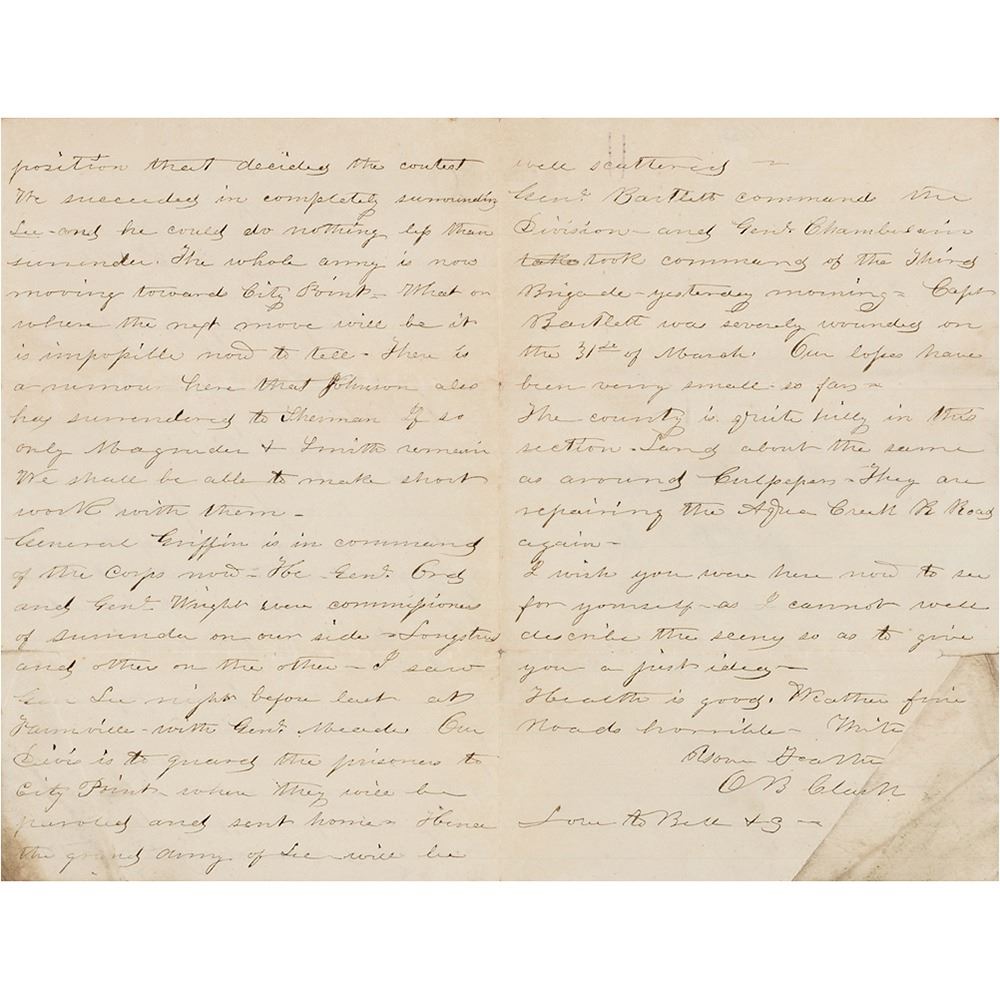 position that decided the contest
We succeeded in completely surrounding
Lee - and he could do nothing less than
surrender. The whole army is now
moving toward City Point - What or
where the next move will be it
is impossible now to tell - There is
a rumour here that Johnson also
has surrendered to Sherman If so
only Magruder & Smith remain
We shall be able to make short
work with them -
General Griffin is in command
of the Corps now - He - Genl. Ord
and Genl. Wright were commissioners
of surrender on our side - Longstreet
and other on the other - I saw
Gen Lee night before last at
Farmville - with Genl. Meade Our
Divis is to guard the prisoners to
City Point - where they will be
paroled and sent home - Hence
the grand army of Lee - will be
well scattered -
Genl. Bartlett command the
Division - and Genl. Chamberlain
take took command of the Third
Brigade - yesterday morning - Capt
Bartlett was severly wounded on
the 31st of March. Our losses have
been very small - so far -
The county is quite hilly in this
section - Land about the same
as around Culpeper - They are
repairing the Aqua Creek R Road
again -
I wish you were here now to see
for yourself - as I cannot well
describe the scenes so as to give
you a just idea -
Health is good. Weather fine
Roads horrible - Write
O B Clark
Love to Bell &c -